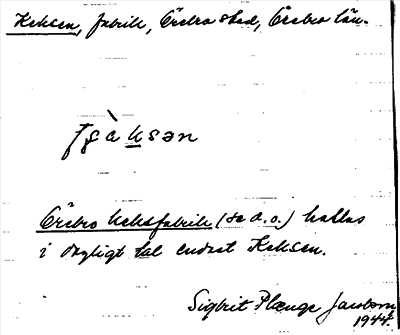 Keksen, fabrik, Örebro stad, Örebro län.
Örebro Keksfabrik (se d.o.) kallas
i dagligt tal endast Keksen.
Sigbrit Plænge Jacobson
1944.